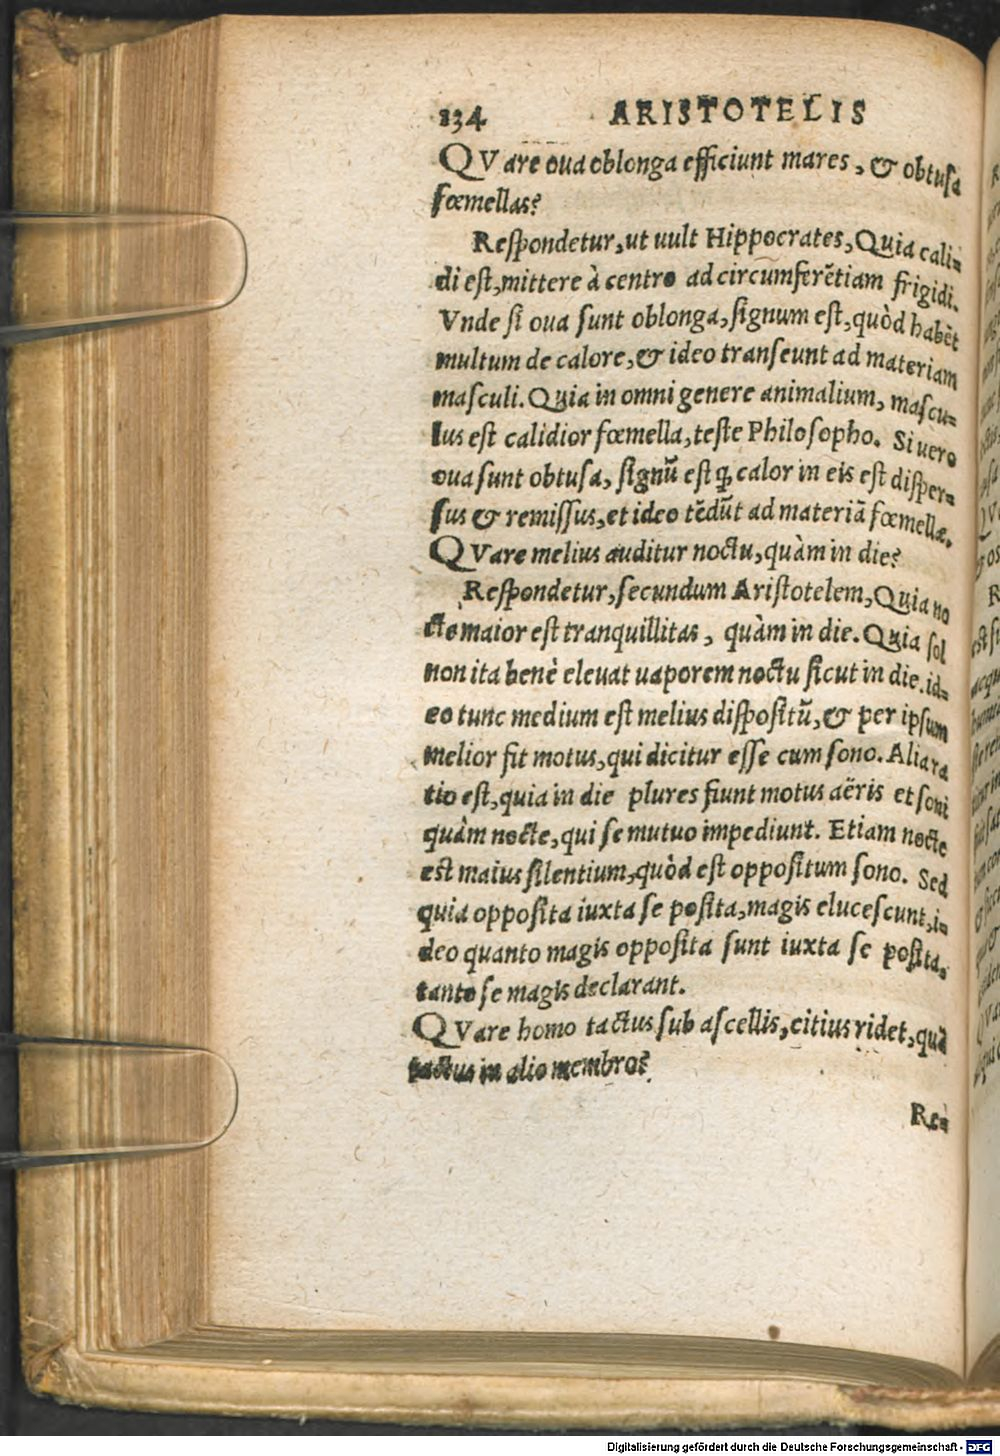 134 ARISTOTELIS
QVare oua oblonga efficiunt mares, & obtusa
fœmellas?
Respondetur, ut uult Hippocrates, Quia cali-
di est, mittere à centro ad circumferẽtiam frigidi.
Vnde si oua sunt oblonga, signum est, quòd habẽt
multum de calore, & ideo transeunt ad materiam
masculi. Quia in omni genere animalium, mascu-
lus est calidior fœmella, teste Philosopho. Si uero
oua sunt obtusa, signũ est ꝙ calor in eis est disper-
sus & remissus, et ideo tẽdũt ad materiã fœmellæ.
QVare melius auditur noctu, quàm in die?
Respondetur, secundum Aristotelem, Quia no
cte maior est tranquillitas, quàm in die. Quia sol
non ita benè eleuat uaporem noctu sicut in die. id-
eo tunc medium est melius dispositũ, & per ipsum
melior fit motus, qui dicitur esse cum sono. Alia ra
tio est, quia in die plures fiunt motus aëris et soni
quàm nocte, qui se mutuo impediunt. Etiam nocte
est maius silentium, quòd est oppositum sono. Sed
quia opposita iuxta se posita, magis elucescunt, i-
deo quanto magis opposita sunt iuxta se posita,
tanto se magis declarant.
QVare homo tactus sub ascellis, citius ridet, quã
tactus in alio membro?
Re-
Digitalisierung gefördert durch die Deutsche Forschungsgemeinschaft - DFG